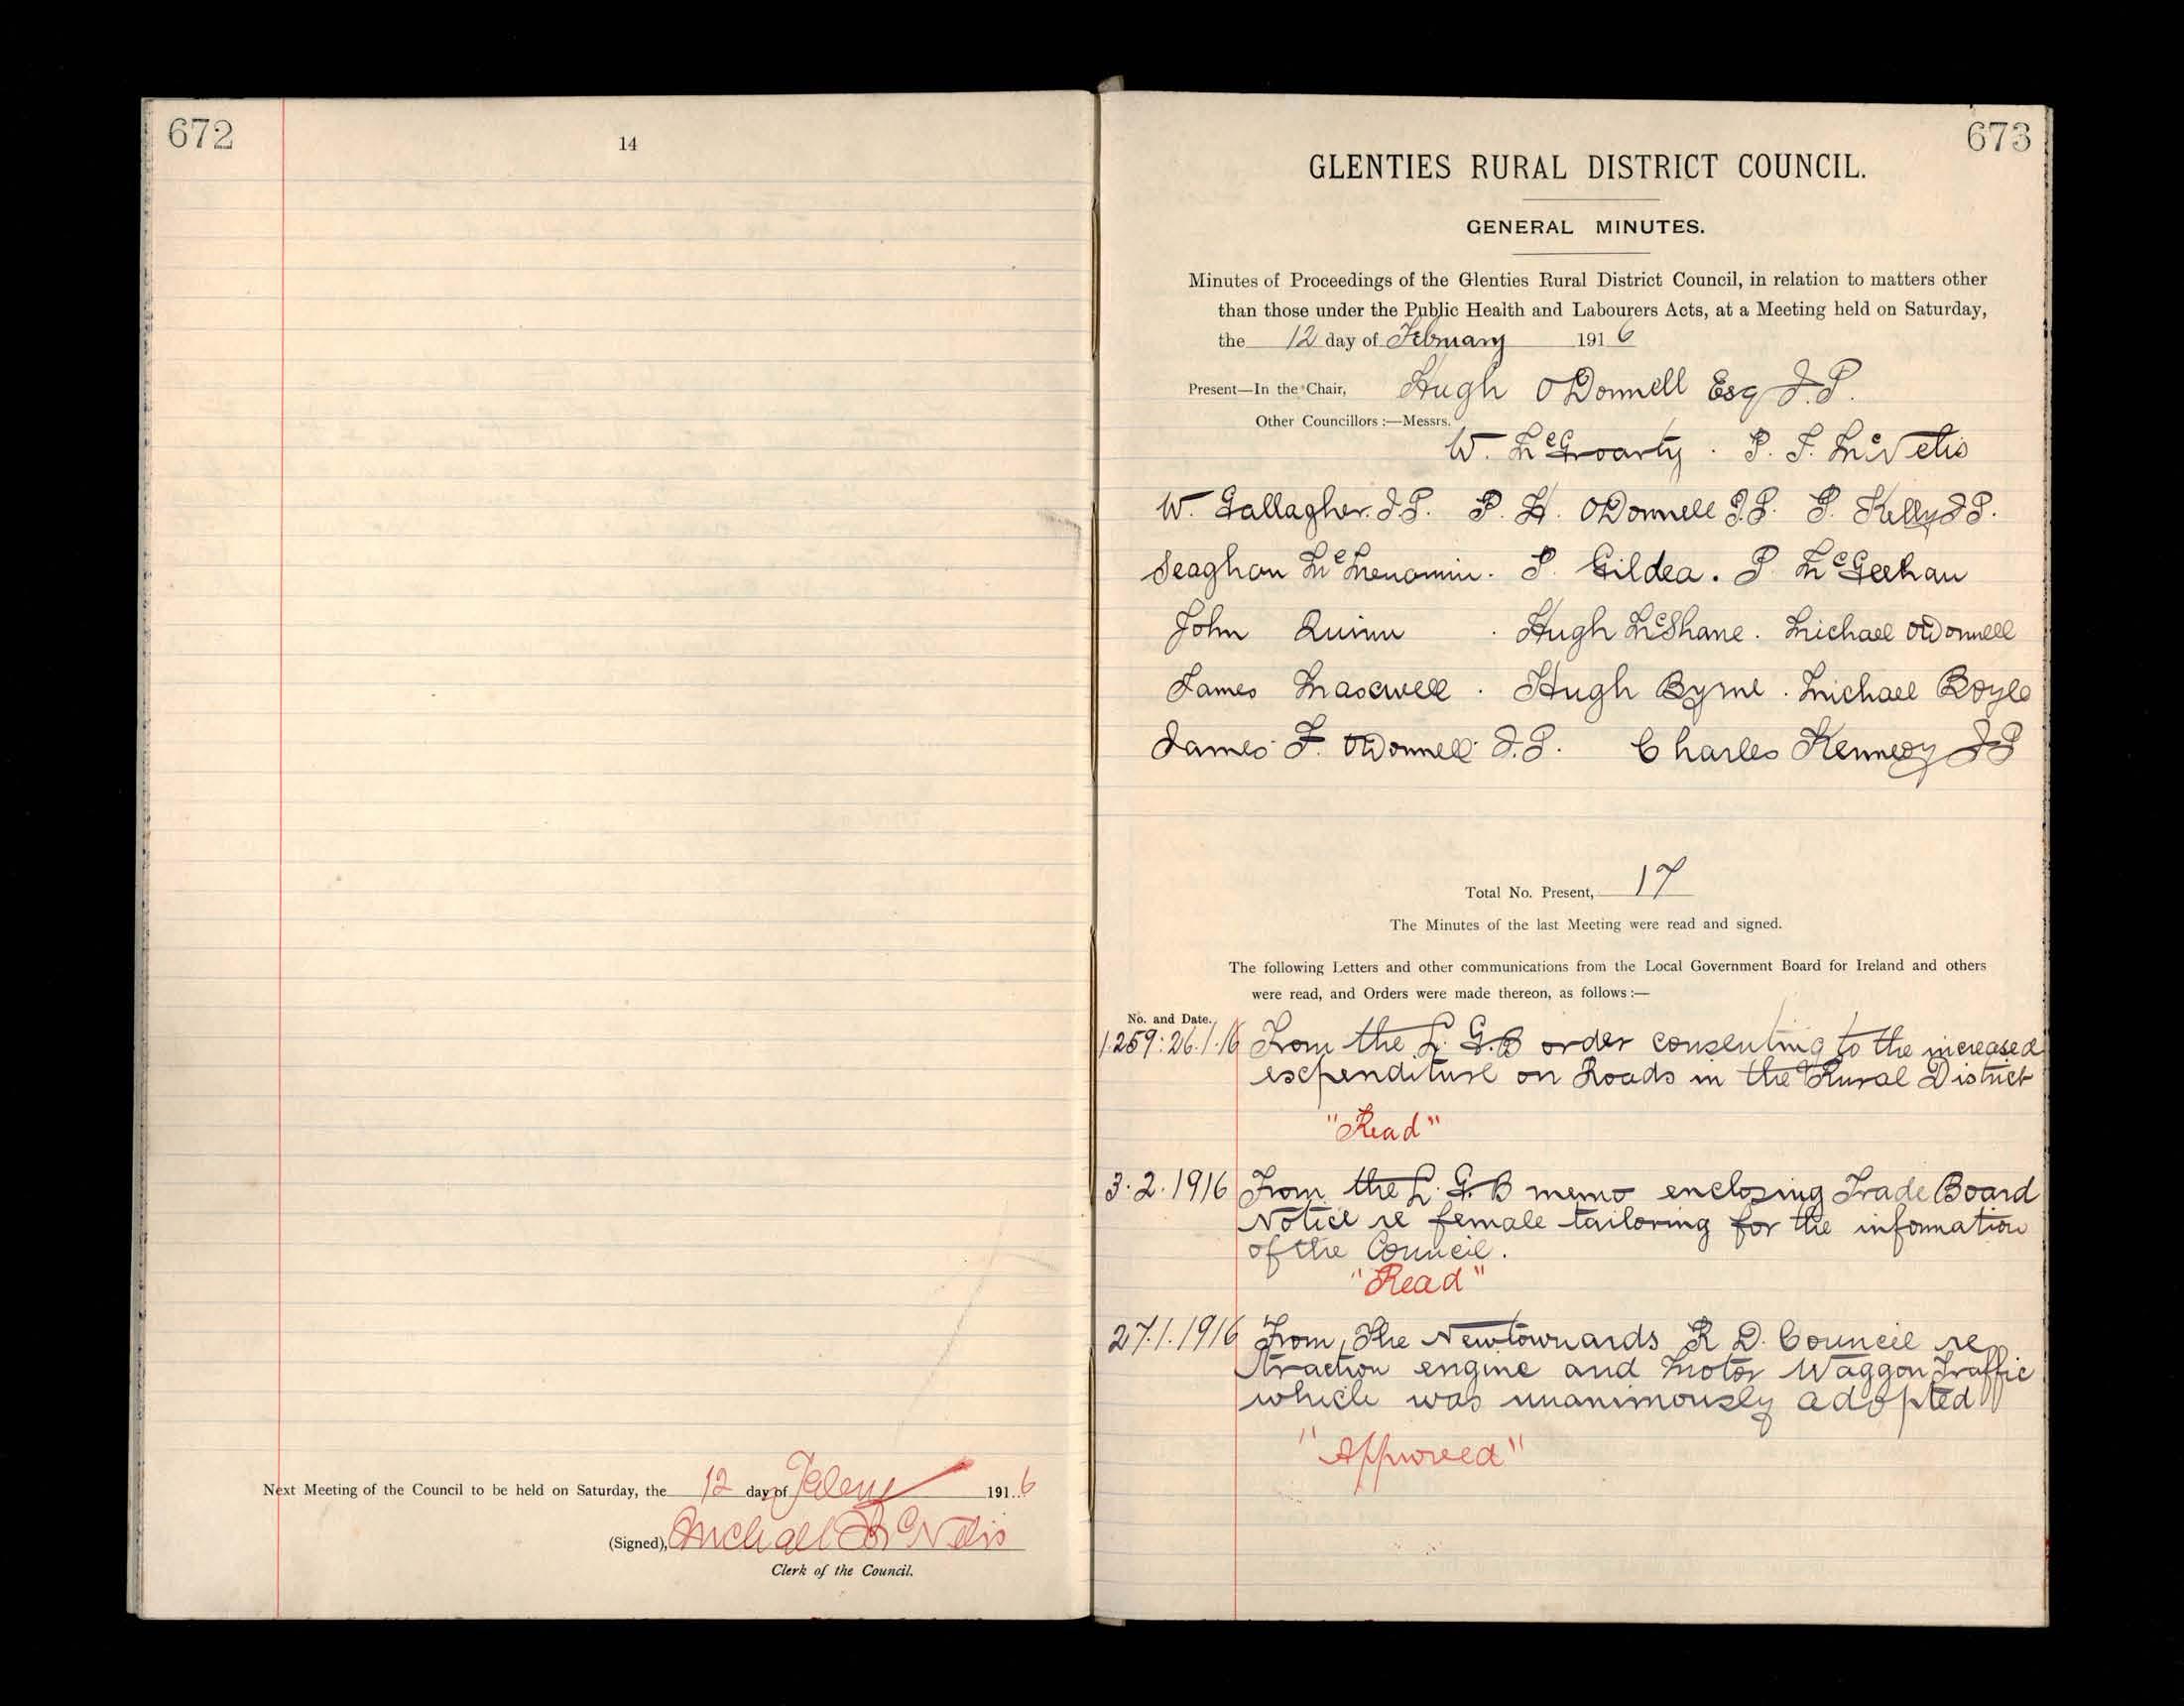 672
14
Next Meeting of the Council to be held on Saturday, the 12 day of Feby 1916
(Signed), Michael McNelis
Clerk of the Council.
673
GLENTIES RURAL DISTRICT COUNCIL.
GENERAL MINUTES.
Minutes of Proceedings of the Glenties Rural District Council, in relation to matters other
than those under the Public Health and Labourers Acts, at a Meeting held on Saturday,
the 12 day of February 1916
Present—In the Chair, Hugh O'Donnell Esq J.P.
Other Councillors :—Messrs.
W. McGroarty . P. F. McNelis
W. Gallagher. J.P. P. H. O'Donnell J.P. P. Kelly J.P.
Seaghan McMenamin. P. Gildea. P McGeehan
John Quinn . Hugh McShane. Michael O'Donnell
James Maxwell . Hugh Byrne . Michael Boyle
James F. O'Donnell J.P. Charles Kennedy J.P
Total No. Present, 17
The Minutes of the last Meeting were read and signed.
The following Letters and other communications from the Local Government Board for Ireland and others
were read, and Orders were made thereon, as follows :—
No. and Date.
1.259: 26.1.16 From the L. G.B order consenting to the increased
expenditure on Roads in the Rural District
"Read"
3.2.1916 From the L. G.B memo enclosing Trade Board
Notice re female tailoring for the information
of the Council.
"Read"
27.1.1916 From The Newtownards R D. Council re
traction engine and Motor Waggon Traffic
which was unanimously adopted
"Approved"